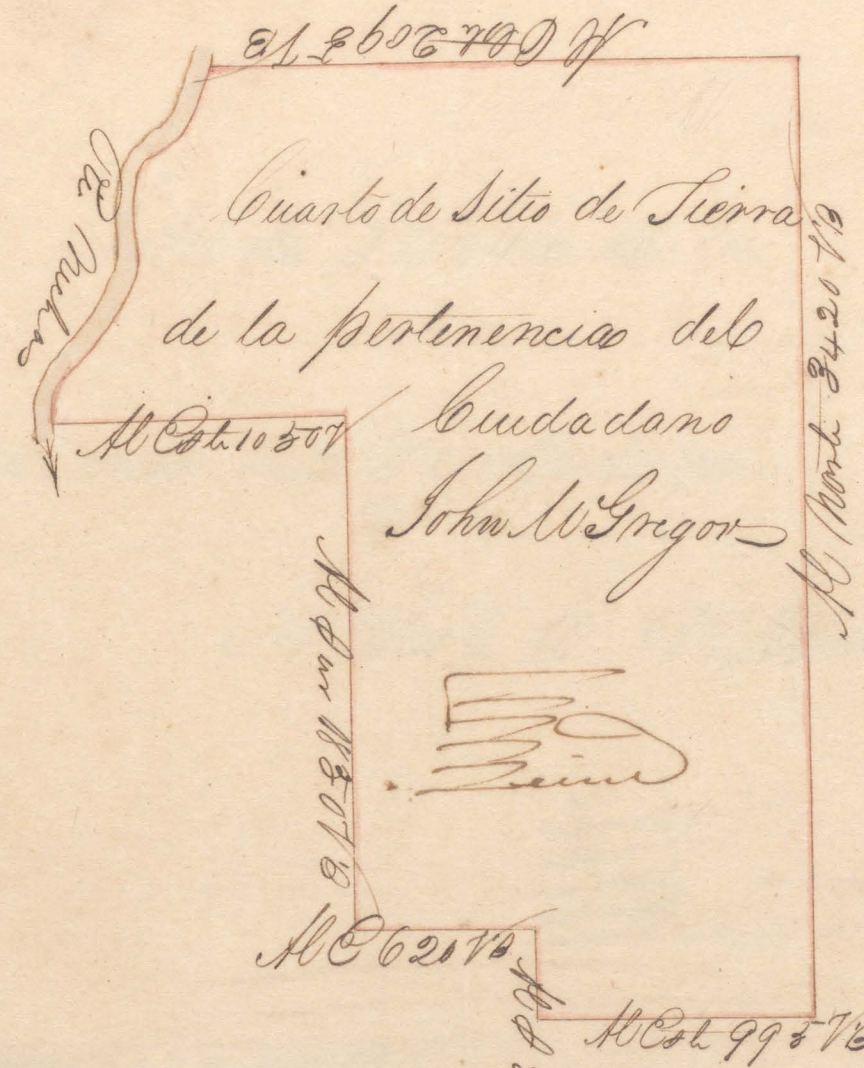 Al Oeste 2095 VS
Rio Nueces
Cuarto de Sitio de Tierra
de la pertenencia del
Ciudadano
John McGregor
Al Norte 3420 VS
Al Este 1050 V
Al Sur 1850 VS
Al E 620 VS
Al S
Al Este 995 VS